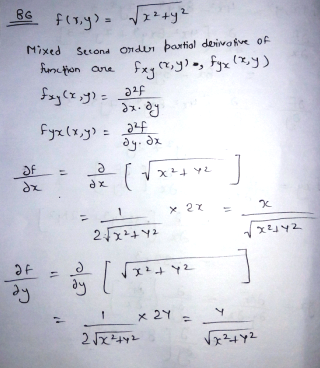 B6 f(x,y) = √x²+y²
Mixed second order partial derivative of
function are fxy(x,y) =, fyx(x,y)
fxy(x,y) = ∂²f/∂x.∂y
fyx(x,y) = ∂²f/∂y.∂x
∂f/∂x = ∂/∂x [√x²+y²]
= 1/2√x²+y² × 2x = x/√x²+y²
∂f/∂y = ∂/∂y [√x²+y²]
= 1/2√x²+y² × 2y = y/√x²+y²